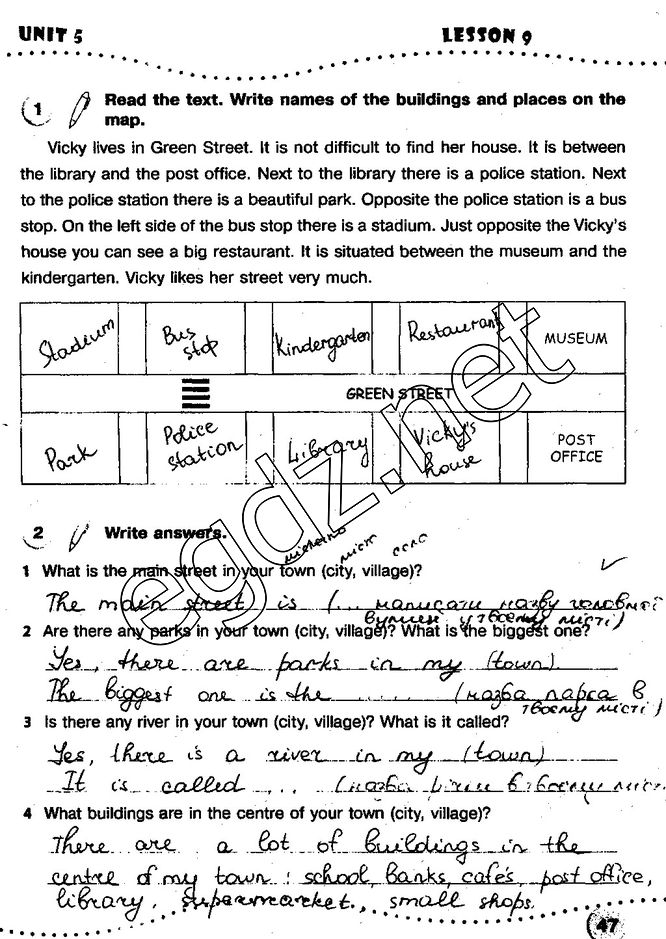 UNIT 5 LESSON 9
1 Read the text. Write names of the buildings and places on the
map.
Vicky lives in Green Street. It is not difficult to find her house. It is between
the library and the post office. Next to the library there is a police station. Next
to the police station there is a beautiful park. Opposite the police station is a bus
stop. On the left side of the bus stop there is a stadium. Just opposite the Vicky's
house you can see a big restaurant. It is situated between the museum and the
kindergarten. Vicky likes her street very much.
Stadium Bus stop Kindergarten Restaurant MUSEUM
GREEN STREET
Park Police station Library Vicky's house POST OFFICE
egdz.net
2 Write answers.
містечко місто село
1 What is the main street in your town (city, village)?
The main street is (... написати назву головної
вулиці у твоєму місті)
2 Are there any parks in your town (city, village)? What is the biggest one?
Yes, there are parks in my (town).
The biggest one is the ...... (назва парка в
твоєму місті)
3 Is there any river in your town (city, village)? What is it called?
Yes, there is a river in my (town)
It is called ... (назва річки в твоєму міс.
4 What buildings are in the centre of your town (city, village)?
There are a lot of buildings in the
centre of my town: school, banks, cafés, post office,
library, supermarket, small shops.
47